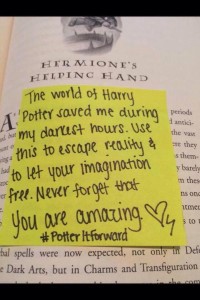 HERMIONE'S
HELPING HAND
The world of Harry
Potter saved me during
my darkest hours. Use
this to escape reality &
to let your imagination
free. Never forget that
you are amazing
#PotterItForward
periods
the vast
they
a them-
barely
them
these
s to
bal spells were now expected, not only in Def
e Dark Arts, but in Charms and Transfiguration